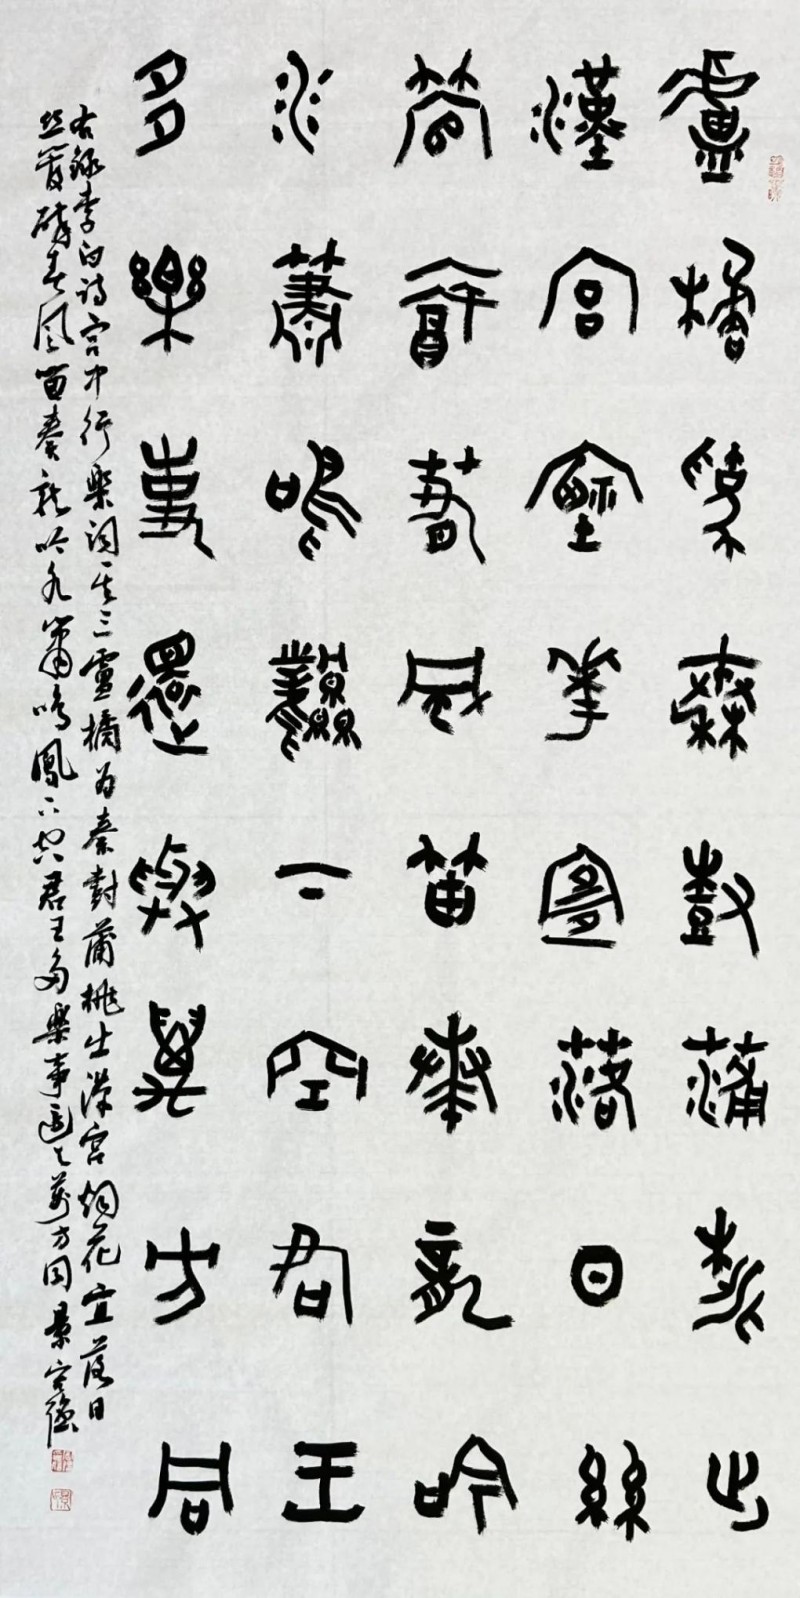 盧橘為秦樹蒲桃出
漢宮煙花宜落日絲
管醉春風笛奏龍吟
水簫鳴鳳下空君王
多樂事還與萬方同
右録李白诗宫中行樂词其三盧橘为秦樹蒲桃出漢宫烟花宜落日
丝管醉春风笛奏龙吟水簫鸣鳳下空君王多樂事還与萬方同景